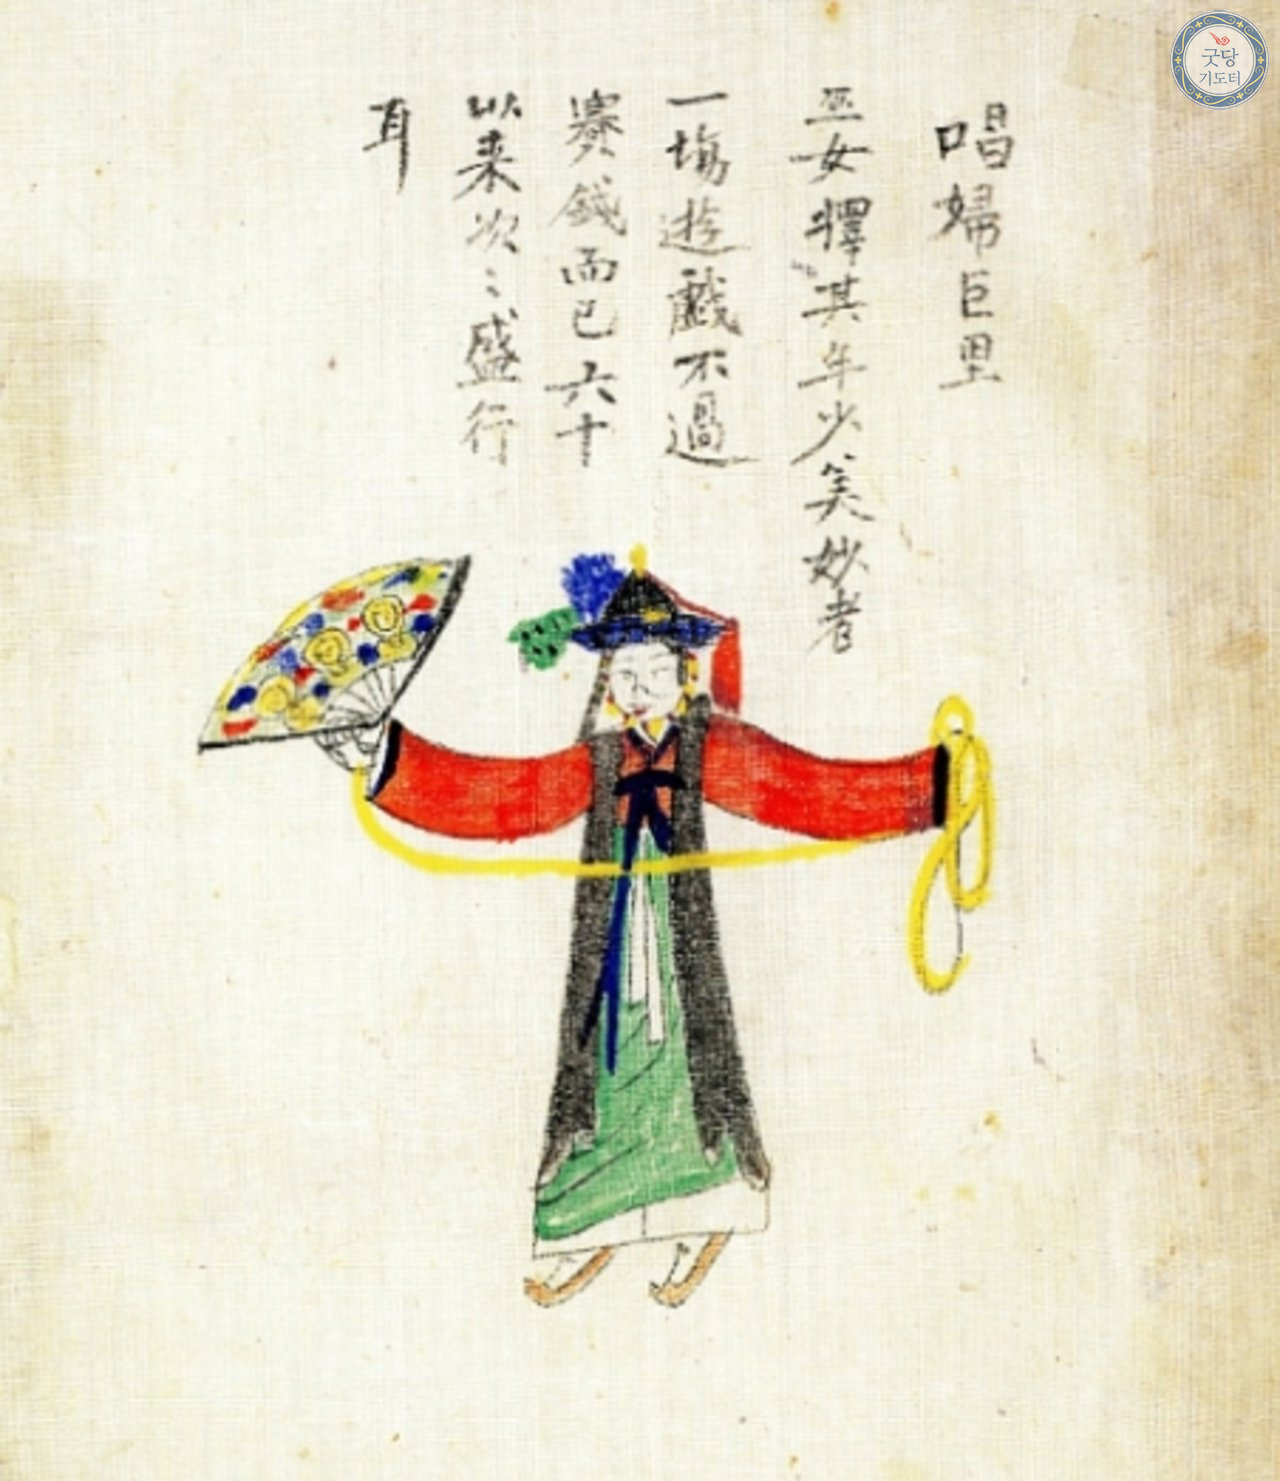 唱婦巨里
巫女擇其年少美妙者
一場遊戱不過
賽錢而已六十
以来次〻盛行
耳
굿당
기도터